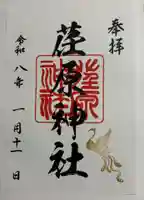 奉拝
荏原神社
令和八年 一月十一日